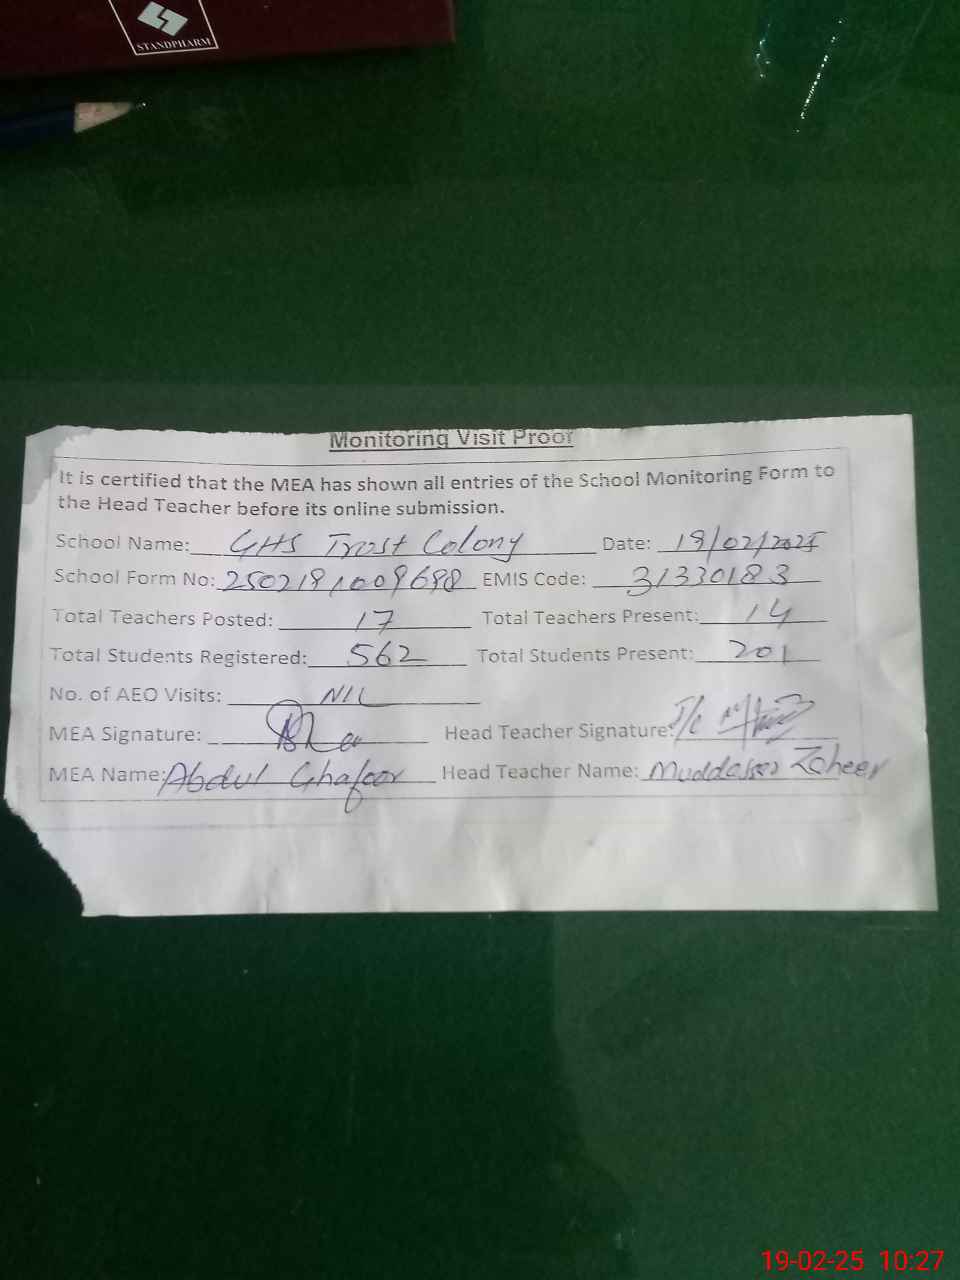 STANDPHARM
Monitoring Visit Proof
It is certified that the MEA has shown all entries of the School Monitoring Form to
the Head Teacher before its online submission.
School Name: GHS Trust Colony Date: 19/02/2025
School Form No: EMIS Code: 31330183
Total Teachers Posted: 17 Total Teachers Present: 14
Total Students Registered: 562 Total Students Present: 201
No. of AEO Visits: NIL
MEA Signature: Head Teacher Signature: I/C
MEA Name: Abdul Ghafoor Head Teacher Name: Muddasser Zaheer
19-02-25 10:27